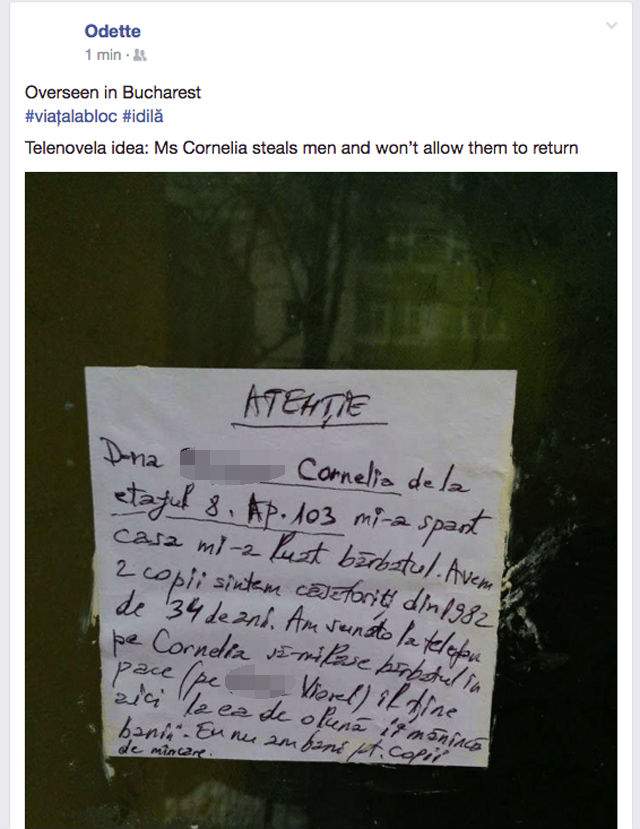 Odette
1 min
Overseen in Bucharest
#viațalabloc #idilă
Telenovela idea: Ms Cornelia steals men and won't allow them to return
ATENȚIE
D-na Cornelia de la
etajul 8. AP. 103 mi-a spart
casa mi-a luat bărbatul. Avem
2 copii sintem căsătoriți din 1982
de 34 de ani. Am sunato la telefon
pe Cornelia să-mi lase bărbatul în
pace (pe Viorel) îl ține
aici la ea de o lună îi mănîncă
banii". Eu nu am bani pt. copii
de mîncare.